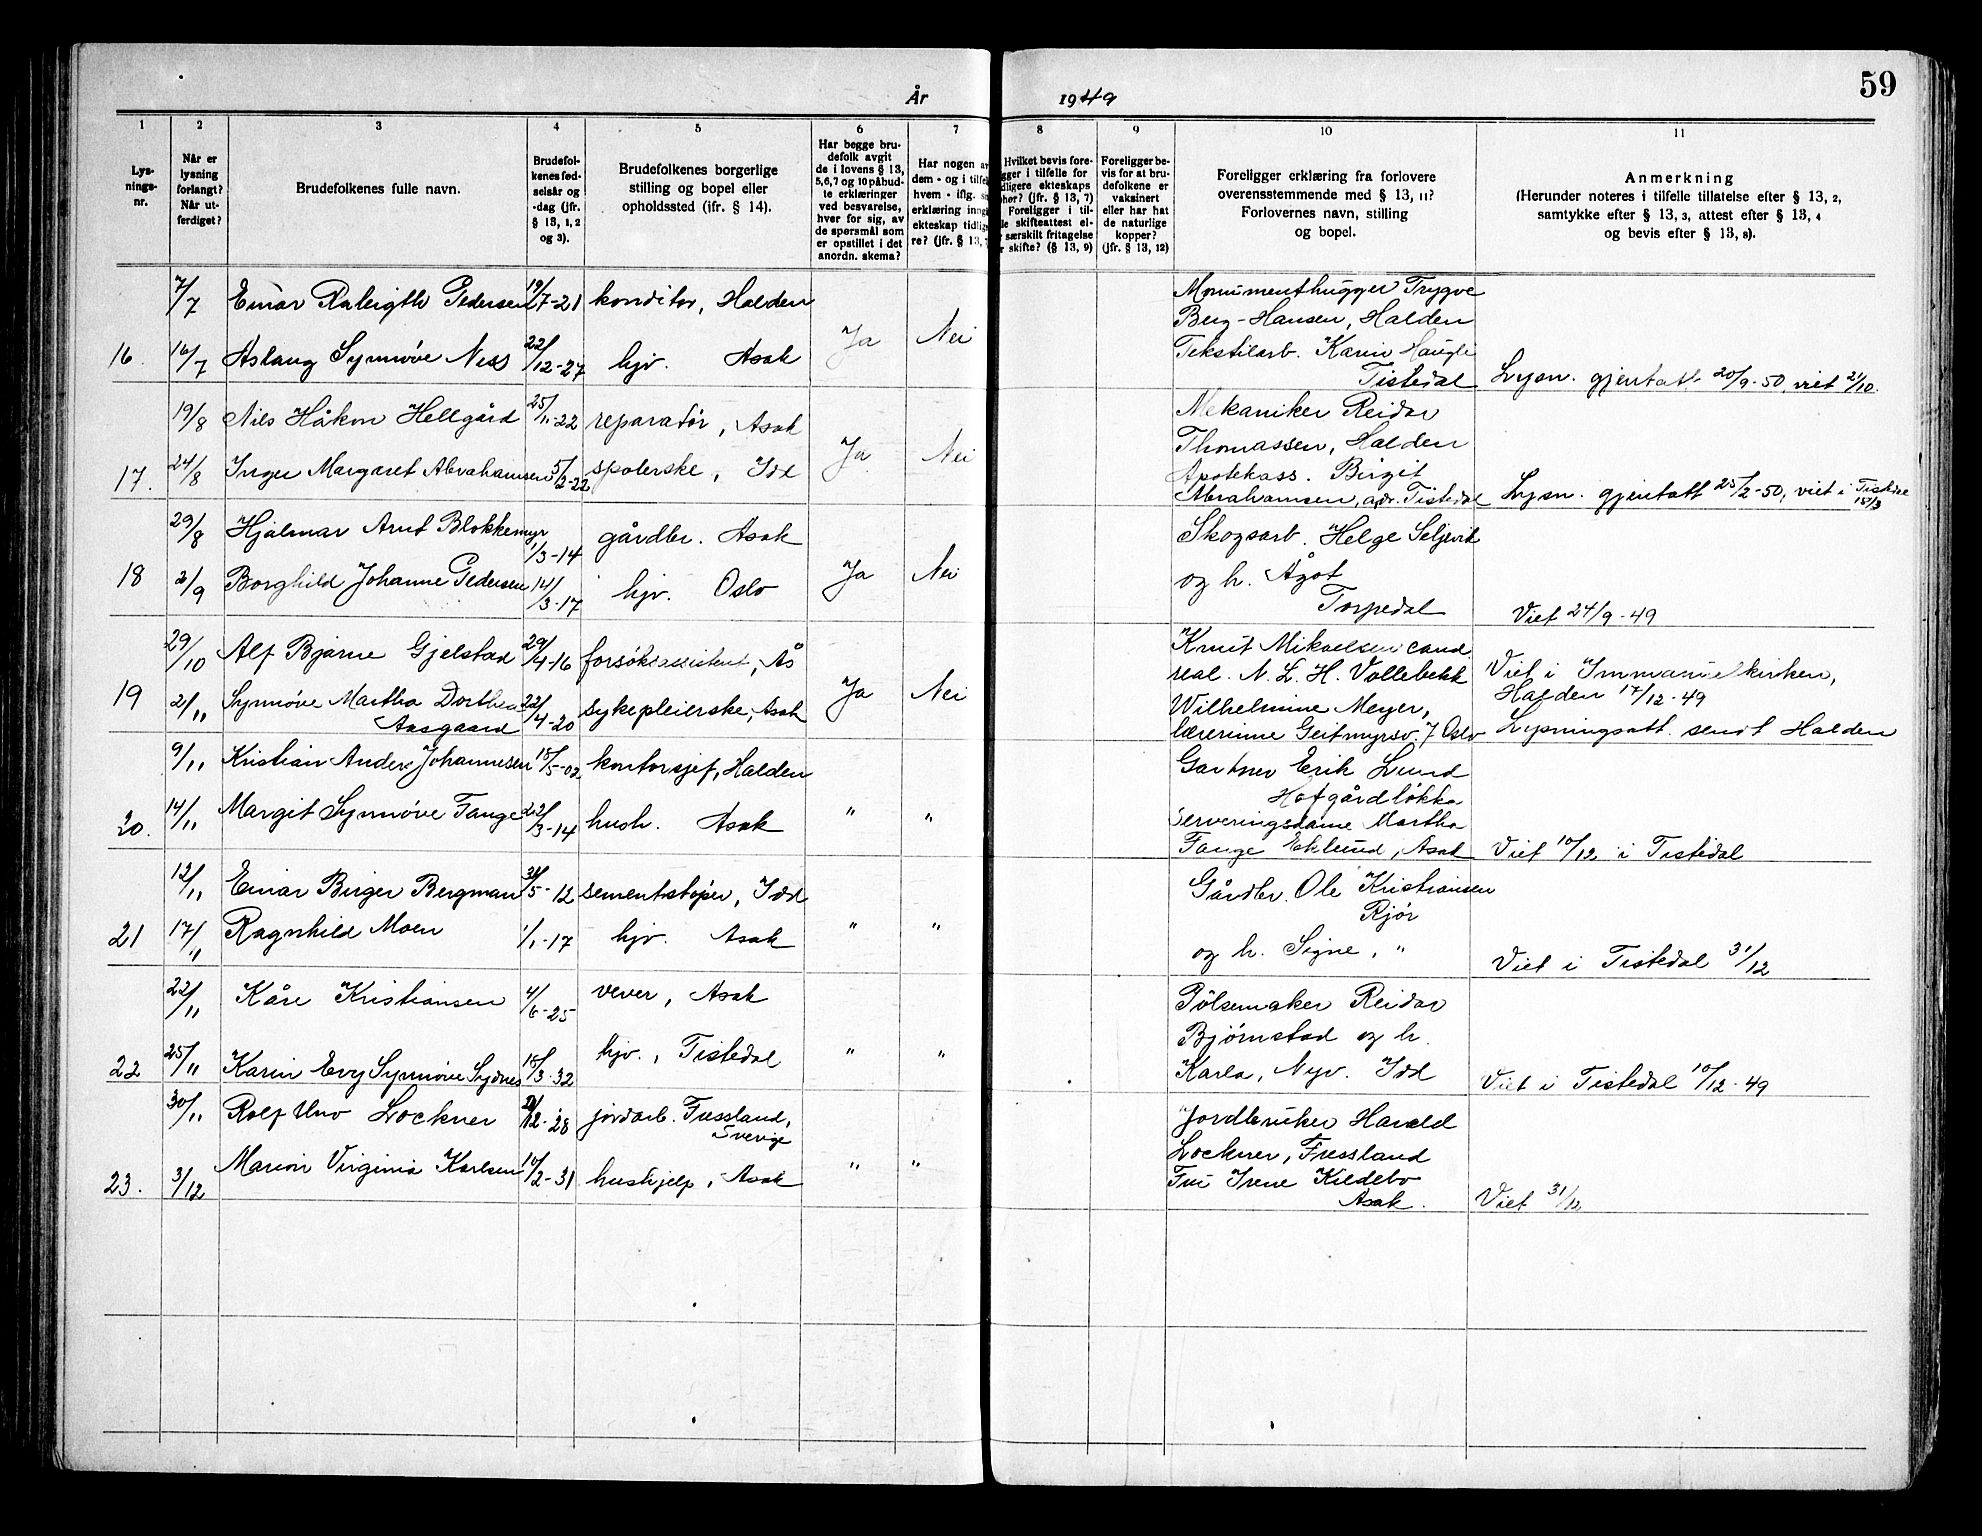 59
År 1949
1 2 3 4 5 6 7 8 9 10 11
Lys-
nings-
nr.
Når er
lysning
forlangt?
Når ut-
ferdiget?
Brudefolkenes fulle navn.
Brudefol-
kenes fød-
selsår og
-dag (jfr.
§ 13, 1, 2
og 3).
Brudefolkenes borgerlige
stilling og bopel eller
opholdssted (ifr. § 14).
Har begge bru-
defolk avgit
de i lovens § 13,
5,6,7 og 10 påbud-
te erklæringer
ved besvarelse,
hver for sig, av
de spørsmål som
er opstillet i det
anordn. skema?
Har nogen av
dem - og i tilfelle
hvem - iflg.
erklæring inngå
ekteskap tidlige
re? (jfr. § 13, 7
Hvilket bevis fore-
gger i tilfelle for
dligere ekteskaps
phør? (jfr. § 13, 7)
Foreligger i til-
le skifteattest el-
særskilt fritagelse
r skifte? (§ 13, 9)
Foreligger be-
vis for at bru-
defolkene er
vaksinert
eller har hat
de naturlige
kopper?
(jfr. § 13, 12)
Foreligger erklæring fra forlovere
overensstemmende med § 13, 11?
Forlovernes navn, stilling
og bopel.
Anmerkning
(Herunder noteres i tilfelle tillatelse efter § 13, 2,
samtykke efter § 13, 3, attest efter § 13, 4
og bevis efter § 13, 8).
7/7 Einar Raleigth Pedersen 19/7-21 konditor, Halden
16. 16/7 Aslaug Synnøve Ness 22/12-27 hjv. Asak Ja Nei
Monumenthugger Trygve
Berg-Hansen, Halden
Tekstilarb. Karin Haugli
Tistedal Lysn. gjentatt 20/9-50, viet 21/10.
19/8 Nils Håkon Hellgård 25/11-22 reparatør, Asak
17. 24/8 Inger Margaret Abrahamsen 5/2-22 spolerske, Idd Ja Nei
Mekaniker Reidar
Thomassen, Halden
Apotekass. Birgit
Abrahamsen, adr. Tistedal Lysn. gjentatt 25/2-50, viet i Tistedal
18/3
29/8 Hjalmar Arnt Blokkemyr 1/3-14 gårdbr. Asak
18 2/9 Borghild Johanne Pedersen 14/3-17 hjv. Oslo Ja Nei
Skogsarb. Helge Seljevik
og h. Ågot
Torpedal Viet 24/9-49
29/10 Alf Bjarne Gjelstad 29/4-16 forsøksassistent, Ås
19 2/11 Synnøve Martha Dorthea
Aasgaard 22/4-20 sykepleierske, Asak Ja Nei
Knut Mikaelsen cand.
real. N. L. H. Vollebekk
Wilhelmine Meyer,
lærerinne Geitmyrsv. 7 Oslo
Viet i Immanuelkirken,
Halden 17/12-49
Lysningsatt. sendt Halden
9/11 Kristian Anders Johannesen 18/5-02 kontorsjef, Halden
20. 14/11 Margit Synnøve Fange 22/3-14 hush. Asak " "
Gartner Erik Lund
Hofgårdløkka
Serveringsdame Martha
Fange Eklund, Asak Viet 10/12 i Tistedal
12/11 Einar Birger Bergman 31/5-12 sementstøper, Idd
21 17/11 Ragnhild Moen 1/1-17 hjv. Asak " "
Gårdbr. Ole Kristiansen
Rjør
og h. Signe, " Viet i Tistedal 31/12
22/11 Kåre Kristiansen 4/6-25 vever, Asak
22 25/11 Karin Evy Synnøve Sydnes 18/3-32 hjv., Tistedal " "
Pølsemaker Reidar
Bjørnstad og h.
Karla, Nyv. Idd Viet i Tistedal 10/12-49
30/11 Rolf Uno Lockner 12-28 jordarb. Fressland,
Sverige
23. 3/12 Marion Virginia Karlsen 10/2-31 hushjelp, Asak " "
Jordbruker Harald
Lockner, Fressland
Fru Irene Kildebo
Asak. Viet 31/12